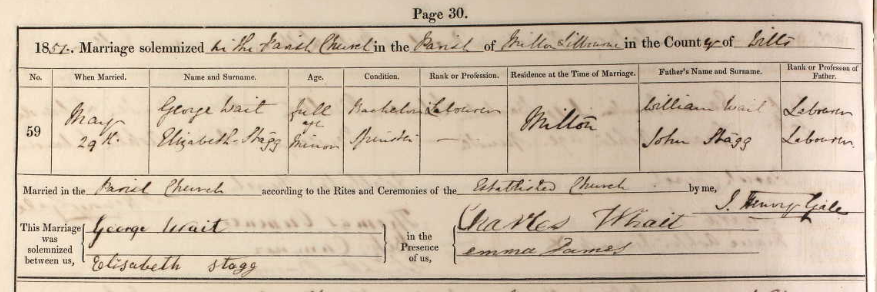 Page 30.
185 . Marriage solemnized in the Parish Church in the Parish of Milton Lilbourne in the County of Wilts
No. When Married. Name and Surname. Age. Condition. Rank or Profession. Residence at the Time of Marriage. Father's Name and Surname. Rank or Profession of Father.
59 May 29th. George Wait full age Bachelor Labourer Milton William Wait Labourer
Elizabeth Stagg Minor Spinster — John Stagg Labourer
Married in the Parish Church according to the Rites and Ceremonies of the Established Church by me,
J. Henry Gale
This Marriage was solemnized between us, George Wait in the Presence of us, Charles Whait
Elisabeth stagg emma James